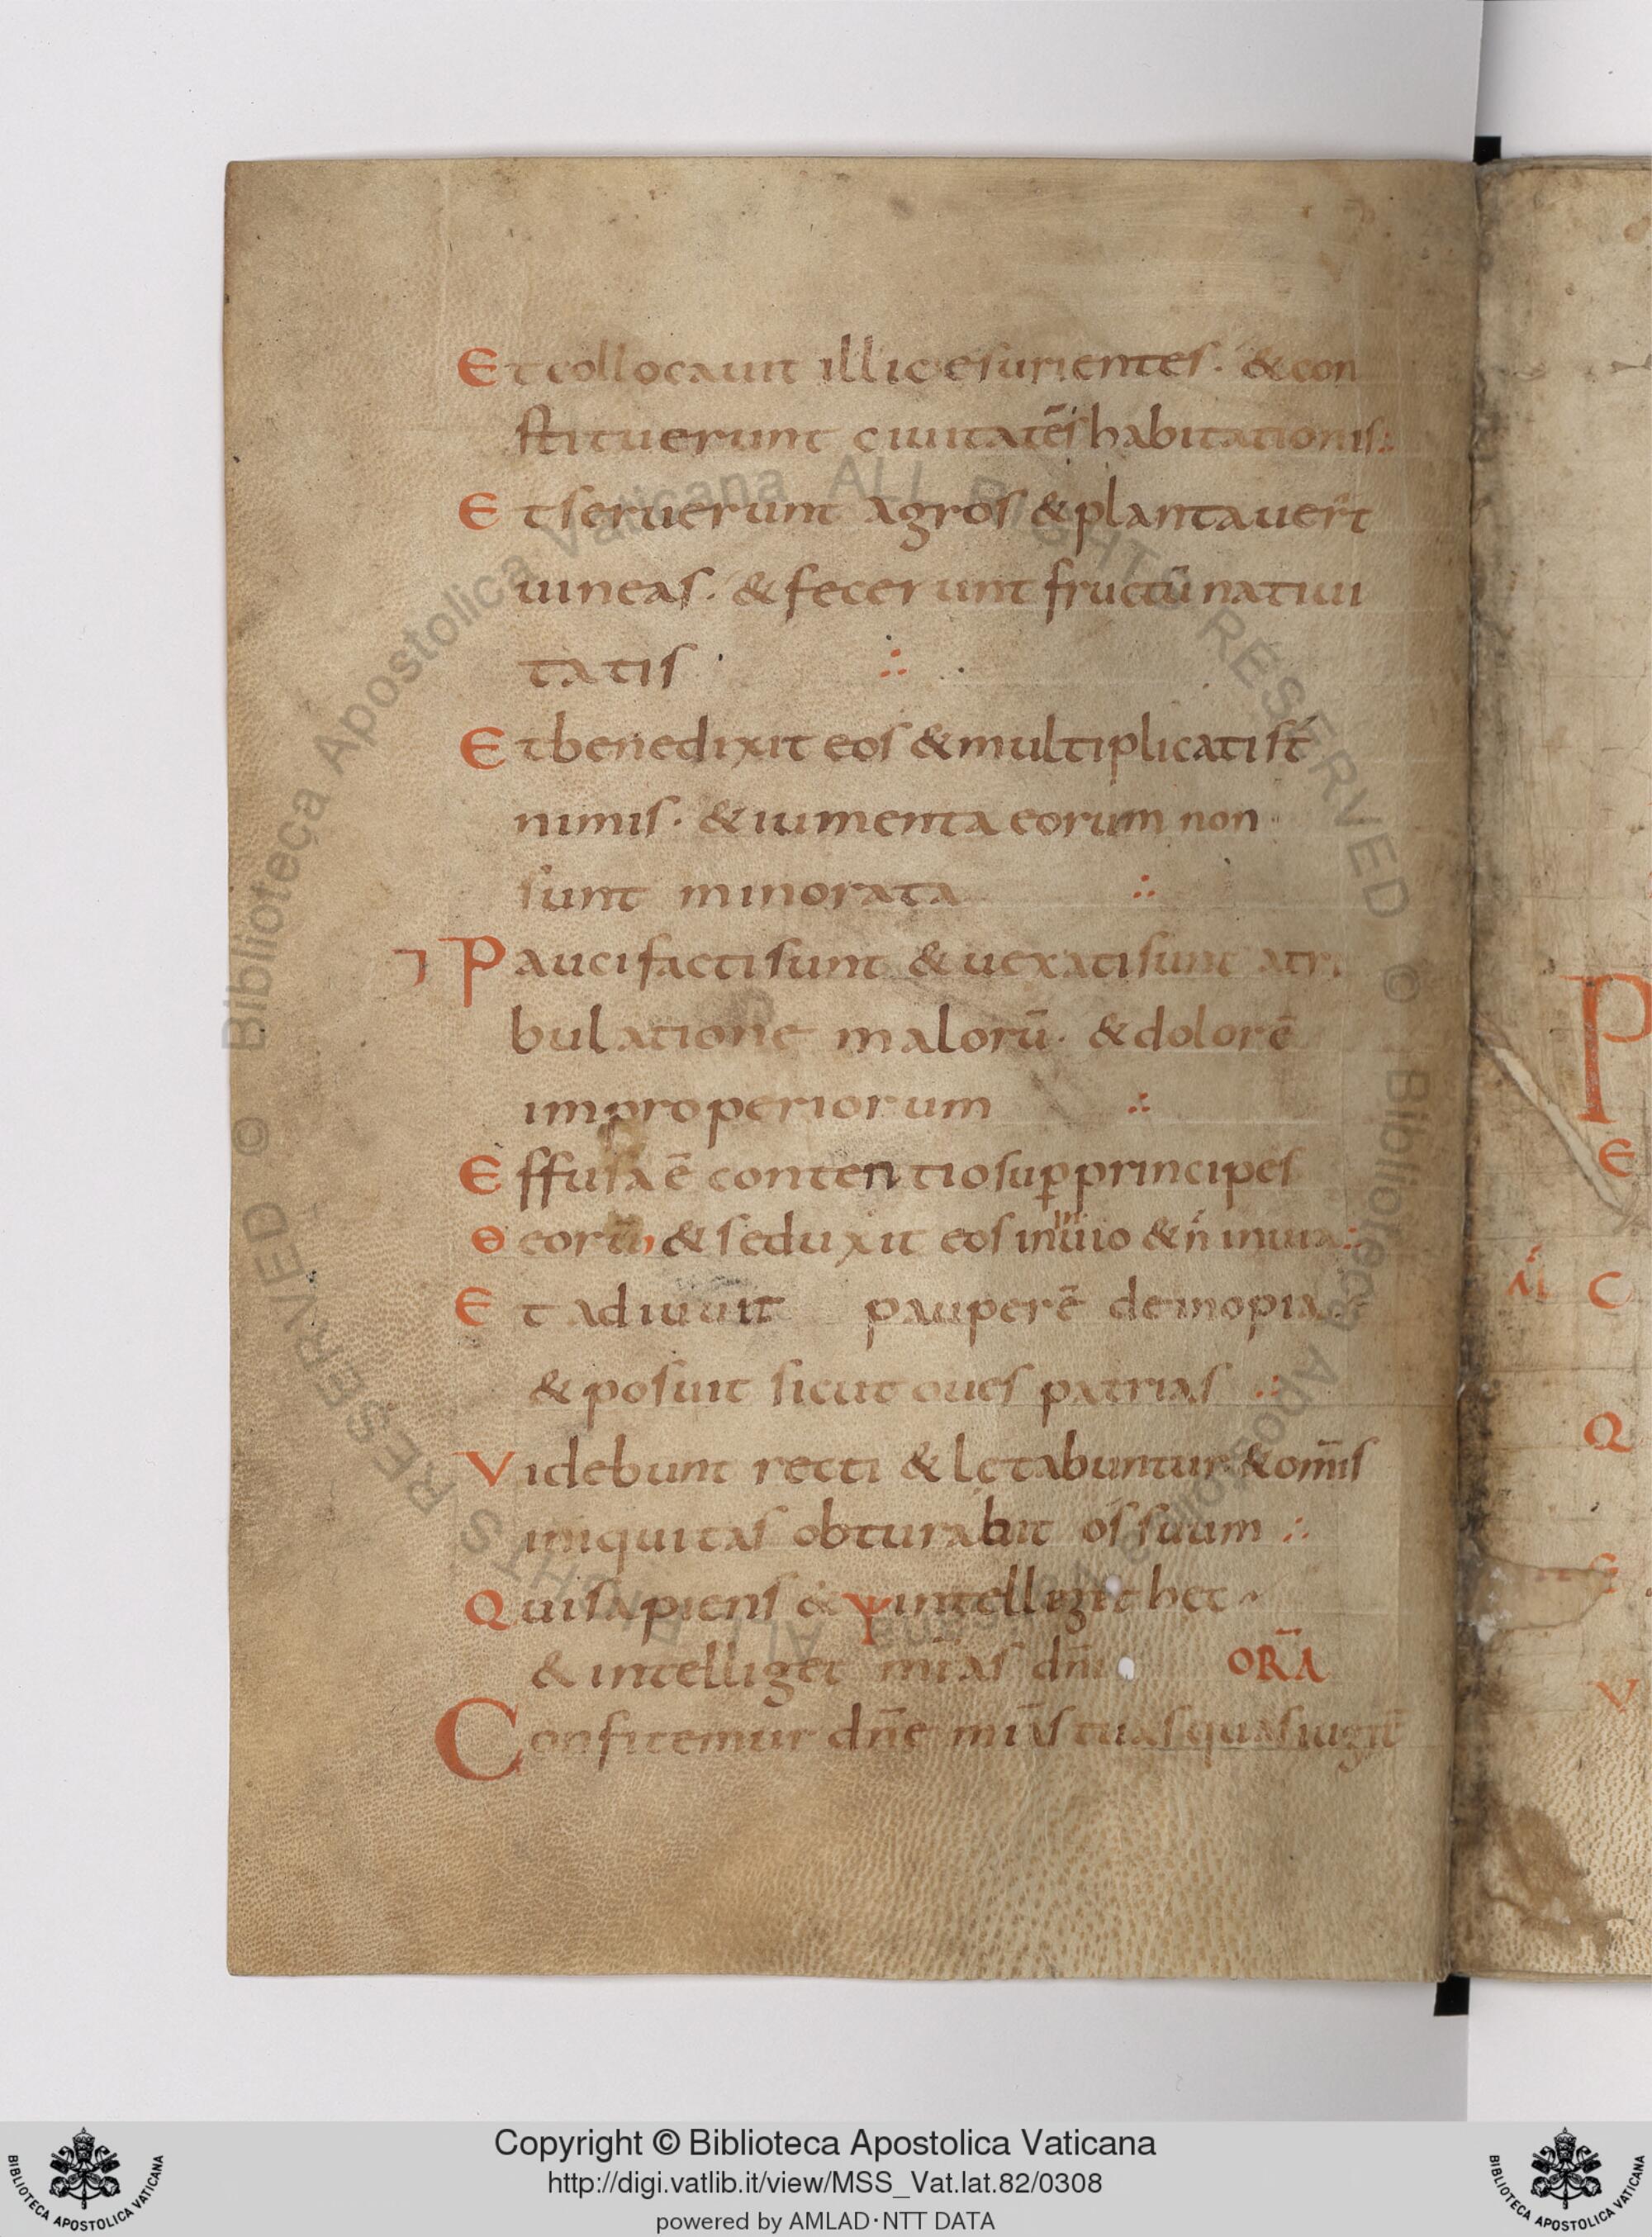 Et collocauit illic esurientes· & con
stituerunt ciuitatē habitationis ∴
Et seruerunt agros & plantauert
uineas· & fecerunt fructū natiui
tatis ∴
Et benedixit eos & multiplicati st
nimis· & iumenta eorum non
sunt minorata ∴
Pauci facti sunt & uexati sunt a tri
bulatione malorū· & dolorē
improperiorum ∴
Effusa ē contentio sup principes
eorū & seduxit eos in inuio & n in uia ∴
Et adiuuit pauperē de inopia
& posuit sicut oues patrias ∴
Videbunt recti & lętabuntur & om̄is
iniquitas obturabit os suum ∴
Qui sapiens & intelligit hec
& intelliget mīas dn̄i ORĀ
Confitemur dn̄e mīas tuas quas iugit
P
E
Ā C
Q
V
© Biblioteca Apostolica Vaticana ALL RIGHTS RESERVED © Biblioteca Apostolica Vaticana ALL RIGHTS RESERVED
Copyright © Biblioteca Apostolica Vaticana
http://digi.vatlib.it/view/MSS_Vat.lat.82/0308
powered by AMLAD·NTT DATA
BIBLIOTECA APOSTOLICA VATICANA
BIBLIOTECA APOSTOLICA VATICANA